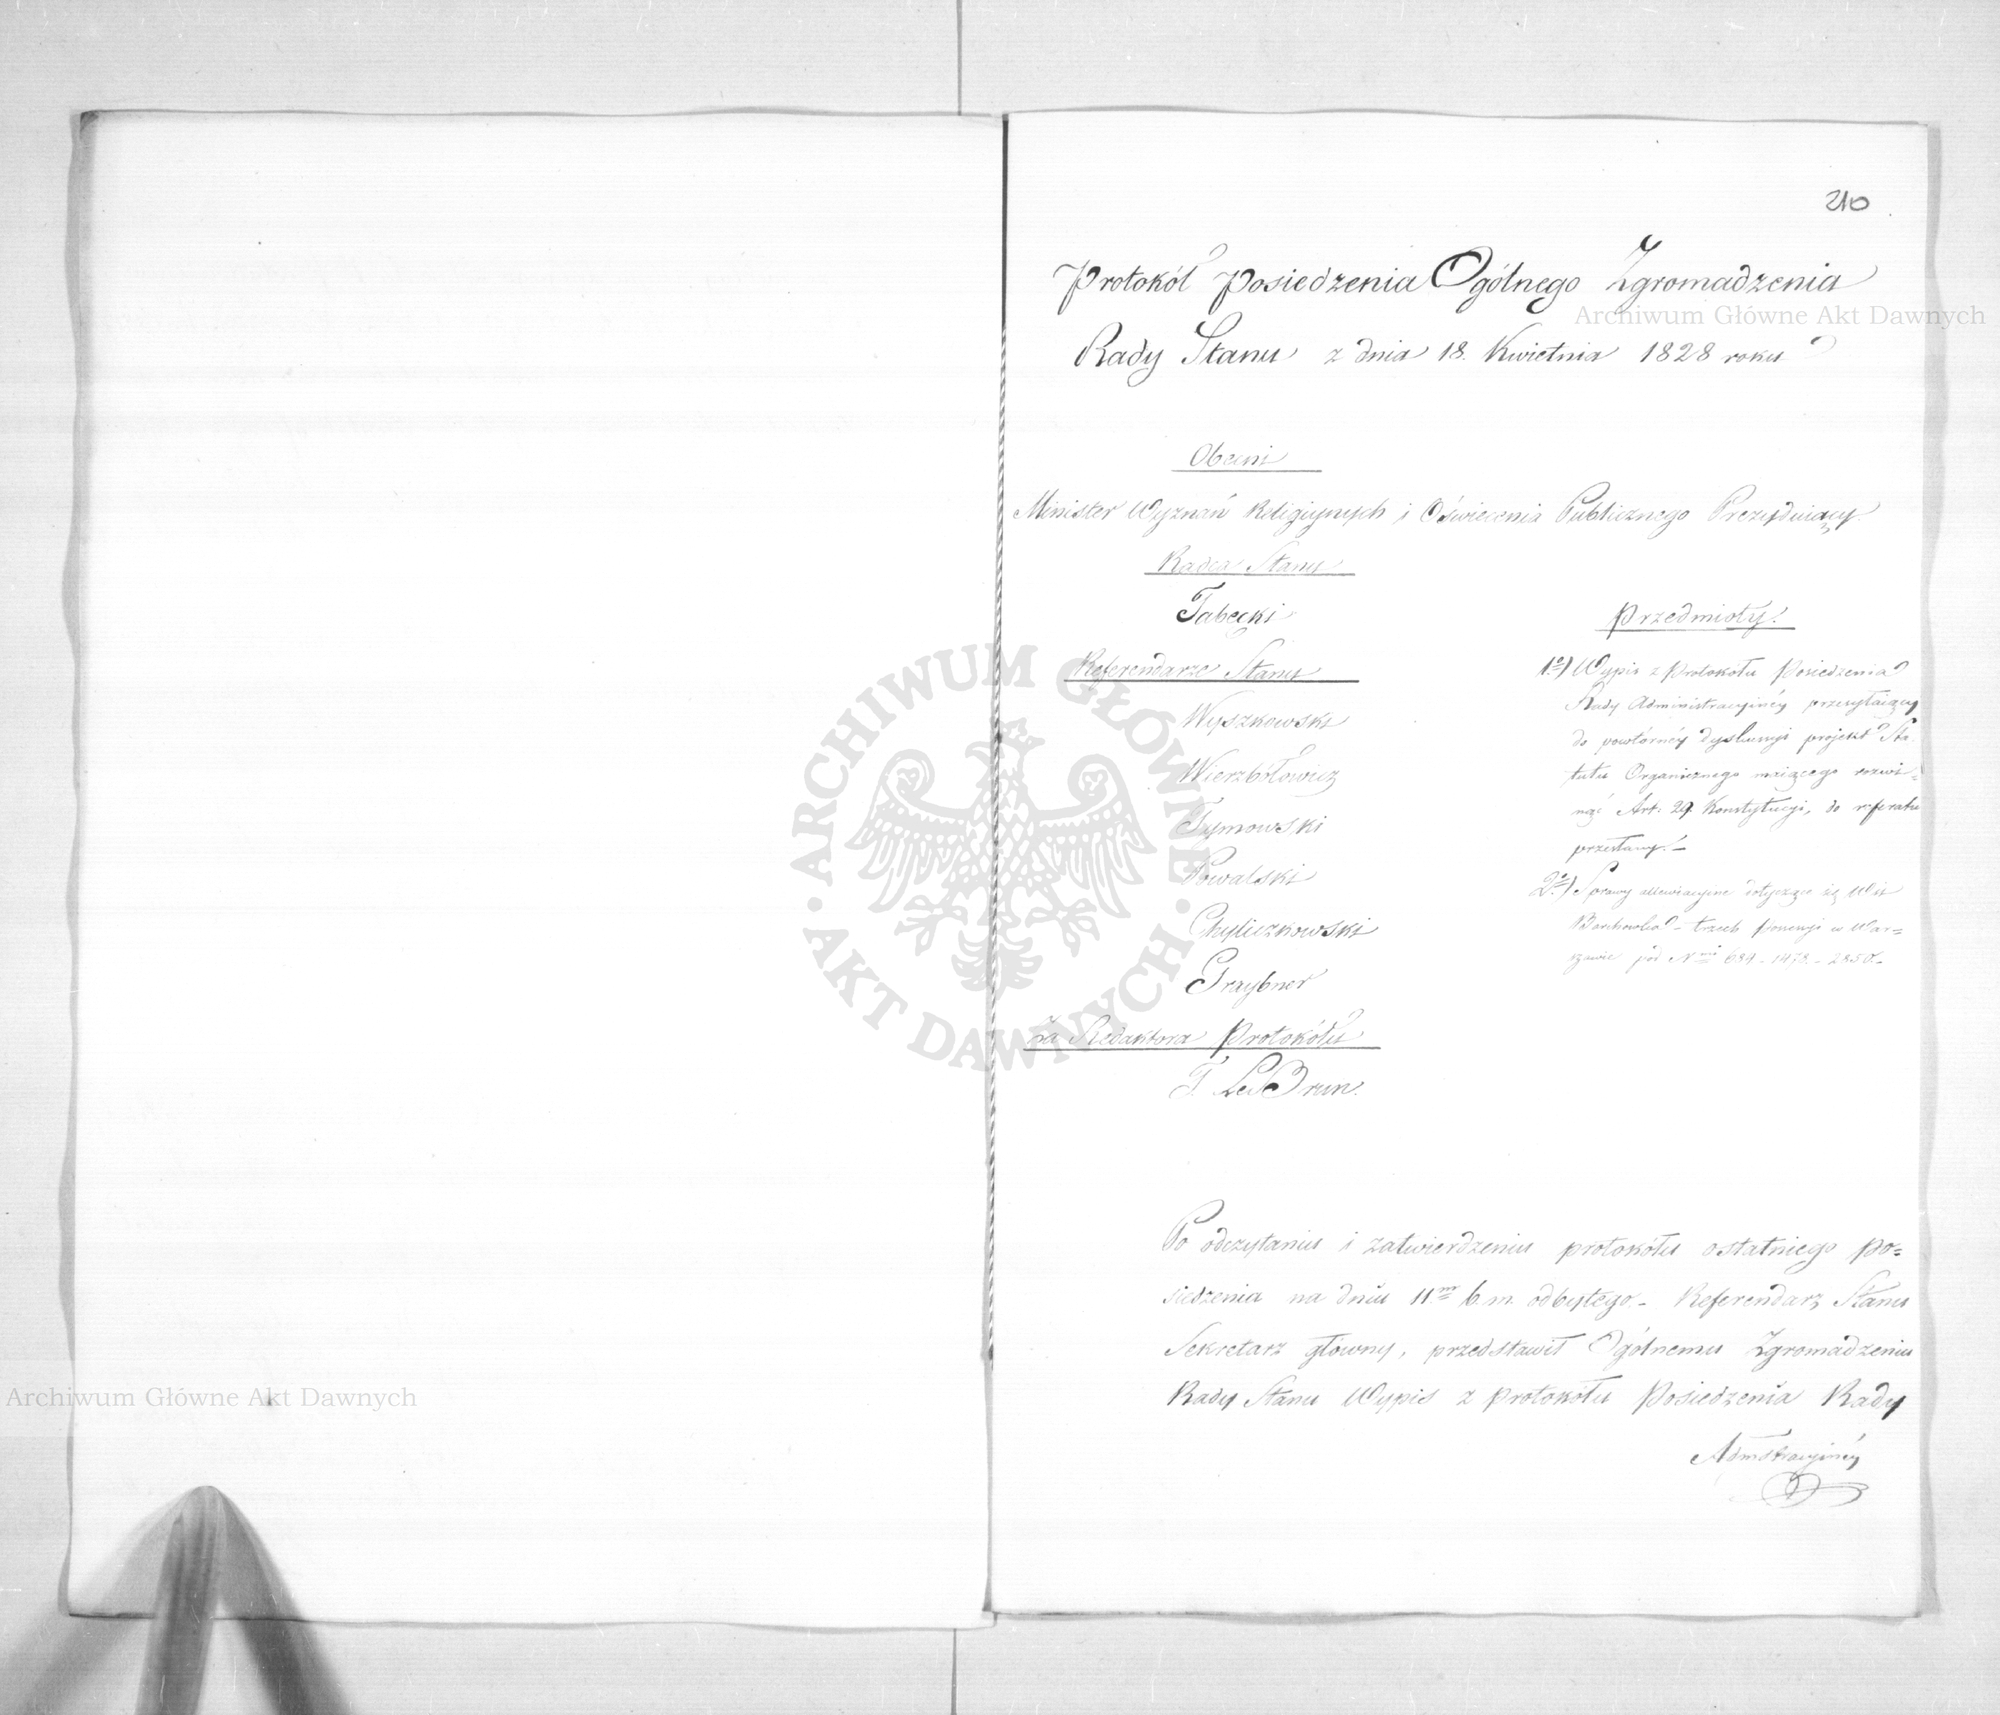 210
Protokół Posiedzenia Ogólnego Zgromadzenia
Rady Stanu z dnia 18. Kwietnia 1828 roku
Obecni
Minister Wyznań Religijnych i Oświecenia Publicznego Prezydujący
Radca Stanu
Tabęcki
Referendarze Stanu
Wyszkowski
Wierzbołowicz
Tymowski
Kowalski
Chyliczkowski
Graybner
Za Redaktora Protokółu
T. LeBrun.
Przedmioty.
1e) Wypis z Protokółu Posiedzenia
Rady Administracyjnéy przesyłaiący
do powtórnéy dyskussyi projekt Sta-
tutu Organicznego maiącego rozwi-
nąć Art: 29. Konstytucyi, do referatu
przesłany.
2e) Sprawy allewiacyjne dotyczące się Wsi
trzech ponoszi w War-
szawie pod Nmi 684 - 1478. - 2850.
Po odczytaniu i zatwierdzeniu protokółu ostatniego Po-
siedzenia na dniu 11m b. m. odbytego. - Referendarz Stanu
Sekretarz główny, przedstawił Ogólnemu Zgromadzeniu
Rady Stanu Wypis z protokółu Posiedzenia Rady
Admstracyjnéy
Archiwum Główne Akt Dawnych
Archiwum Główne Akt Dawnych
ARCHIWUM GŁÓWNE · AKT DAWNYCH ·